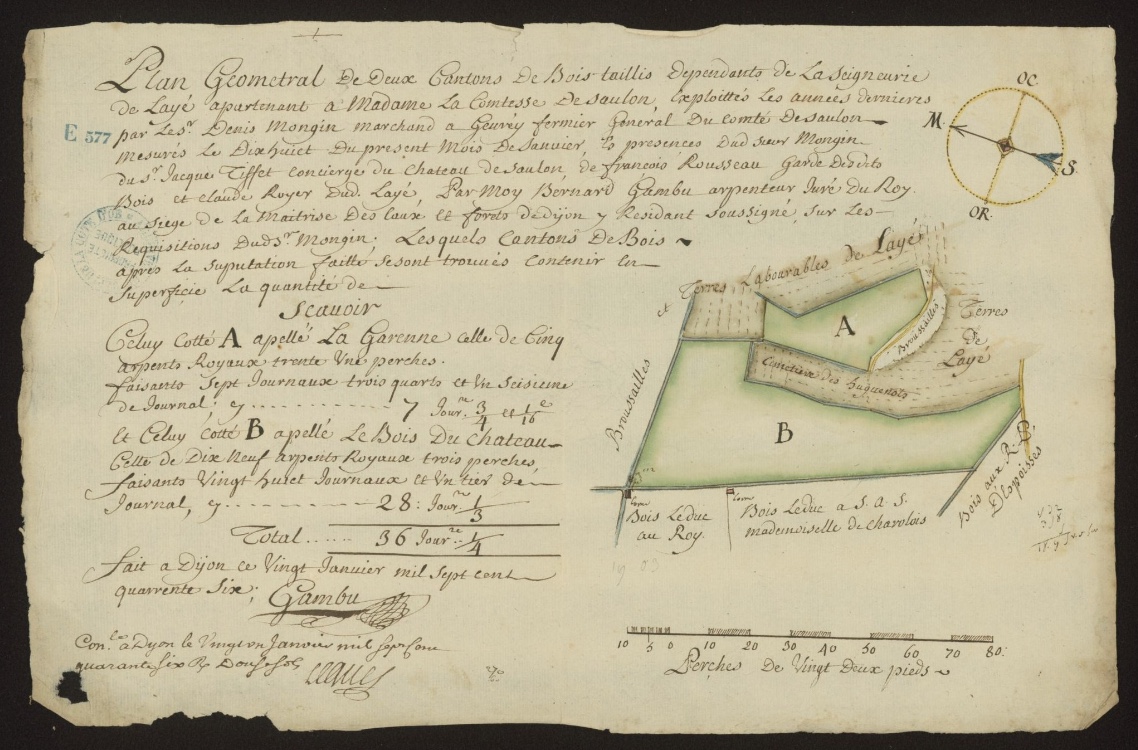 Plan Geometral De Deux Cantons De Bois taillis Dependants de La Seigneurie
de Layé apartenant a Madame La Comtesse De Saulon, Exploittés Les années dernieres
par Le Sr. Denis Mongin marchand a Gevrey fermier General Du Comté De Saulon
E 577
mesurés Le Dixhuict Du present Mois De Janvier, Es presences Dud. Sieur Mongin
du Sr. Jacque Tisset concierge du Chateau de Saulon, de francois Rousseau Garde Desdits
Bois et claude Royer Dud. Layé, Par Moy Bernard Gambu arpenteur Juré Du Roy
au Siege de La Maitrise Des Eaux et forets de Dijon y Residant Soussigné, Sur Les
Requisitions Dud. Sr. Mongin; Lesquels Cantons De Bois
apres La Suputation faitte se sont trouvés Contenir En
Superficie La quantité de
Scavoir
Celuy Cotté A apellé La Garenne Celle de Cinq
arpents Royaux trente Une perches.
faisants Sept Journaux trois quarts et Un Seisieme
de Journal, cy .......... 7 Jour. 3/4 et 1/16e
Et Celuy Cotté B apellé Le Bois Du Chateau
Celle de Dix Neuf arpents Royaux trois perches,
faisants Vingt huict Journaux et Un tier de
Journal, cy .......... 28: Jour. 1/3
Total ...... 36 Jour. 1/4
fait a Dijon ce Vingt Janvier mil Sept Cent
quarrente Six;
Gambu
Con.lé a Dijon le Vingt un Janvier mil sept cent
quarante six R Douse sols
OC.
M.
S.
OR.
et Terres Labourables de Layé
Broussailles
A
Broussailles
Terres
de
Layé
Cimetiere des huguenots
B
Borne
Borne
Bois Le duc
au Roy.
Bois Le duc a S. A. S.
mademoiselle de charolois
Bois aux R. P.
D'Espoisses
10 5 0 10 20 30 40 50 60 70 80:
Perches De Vingt Deux pieds